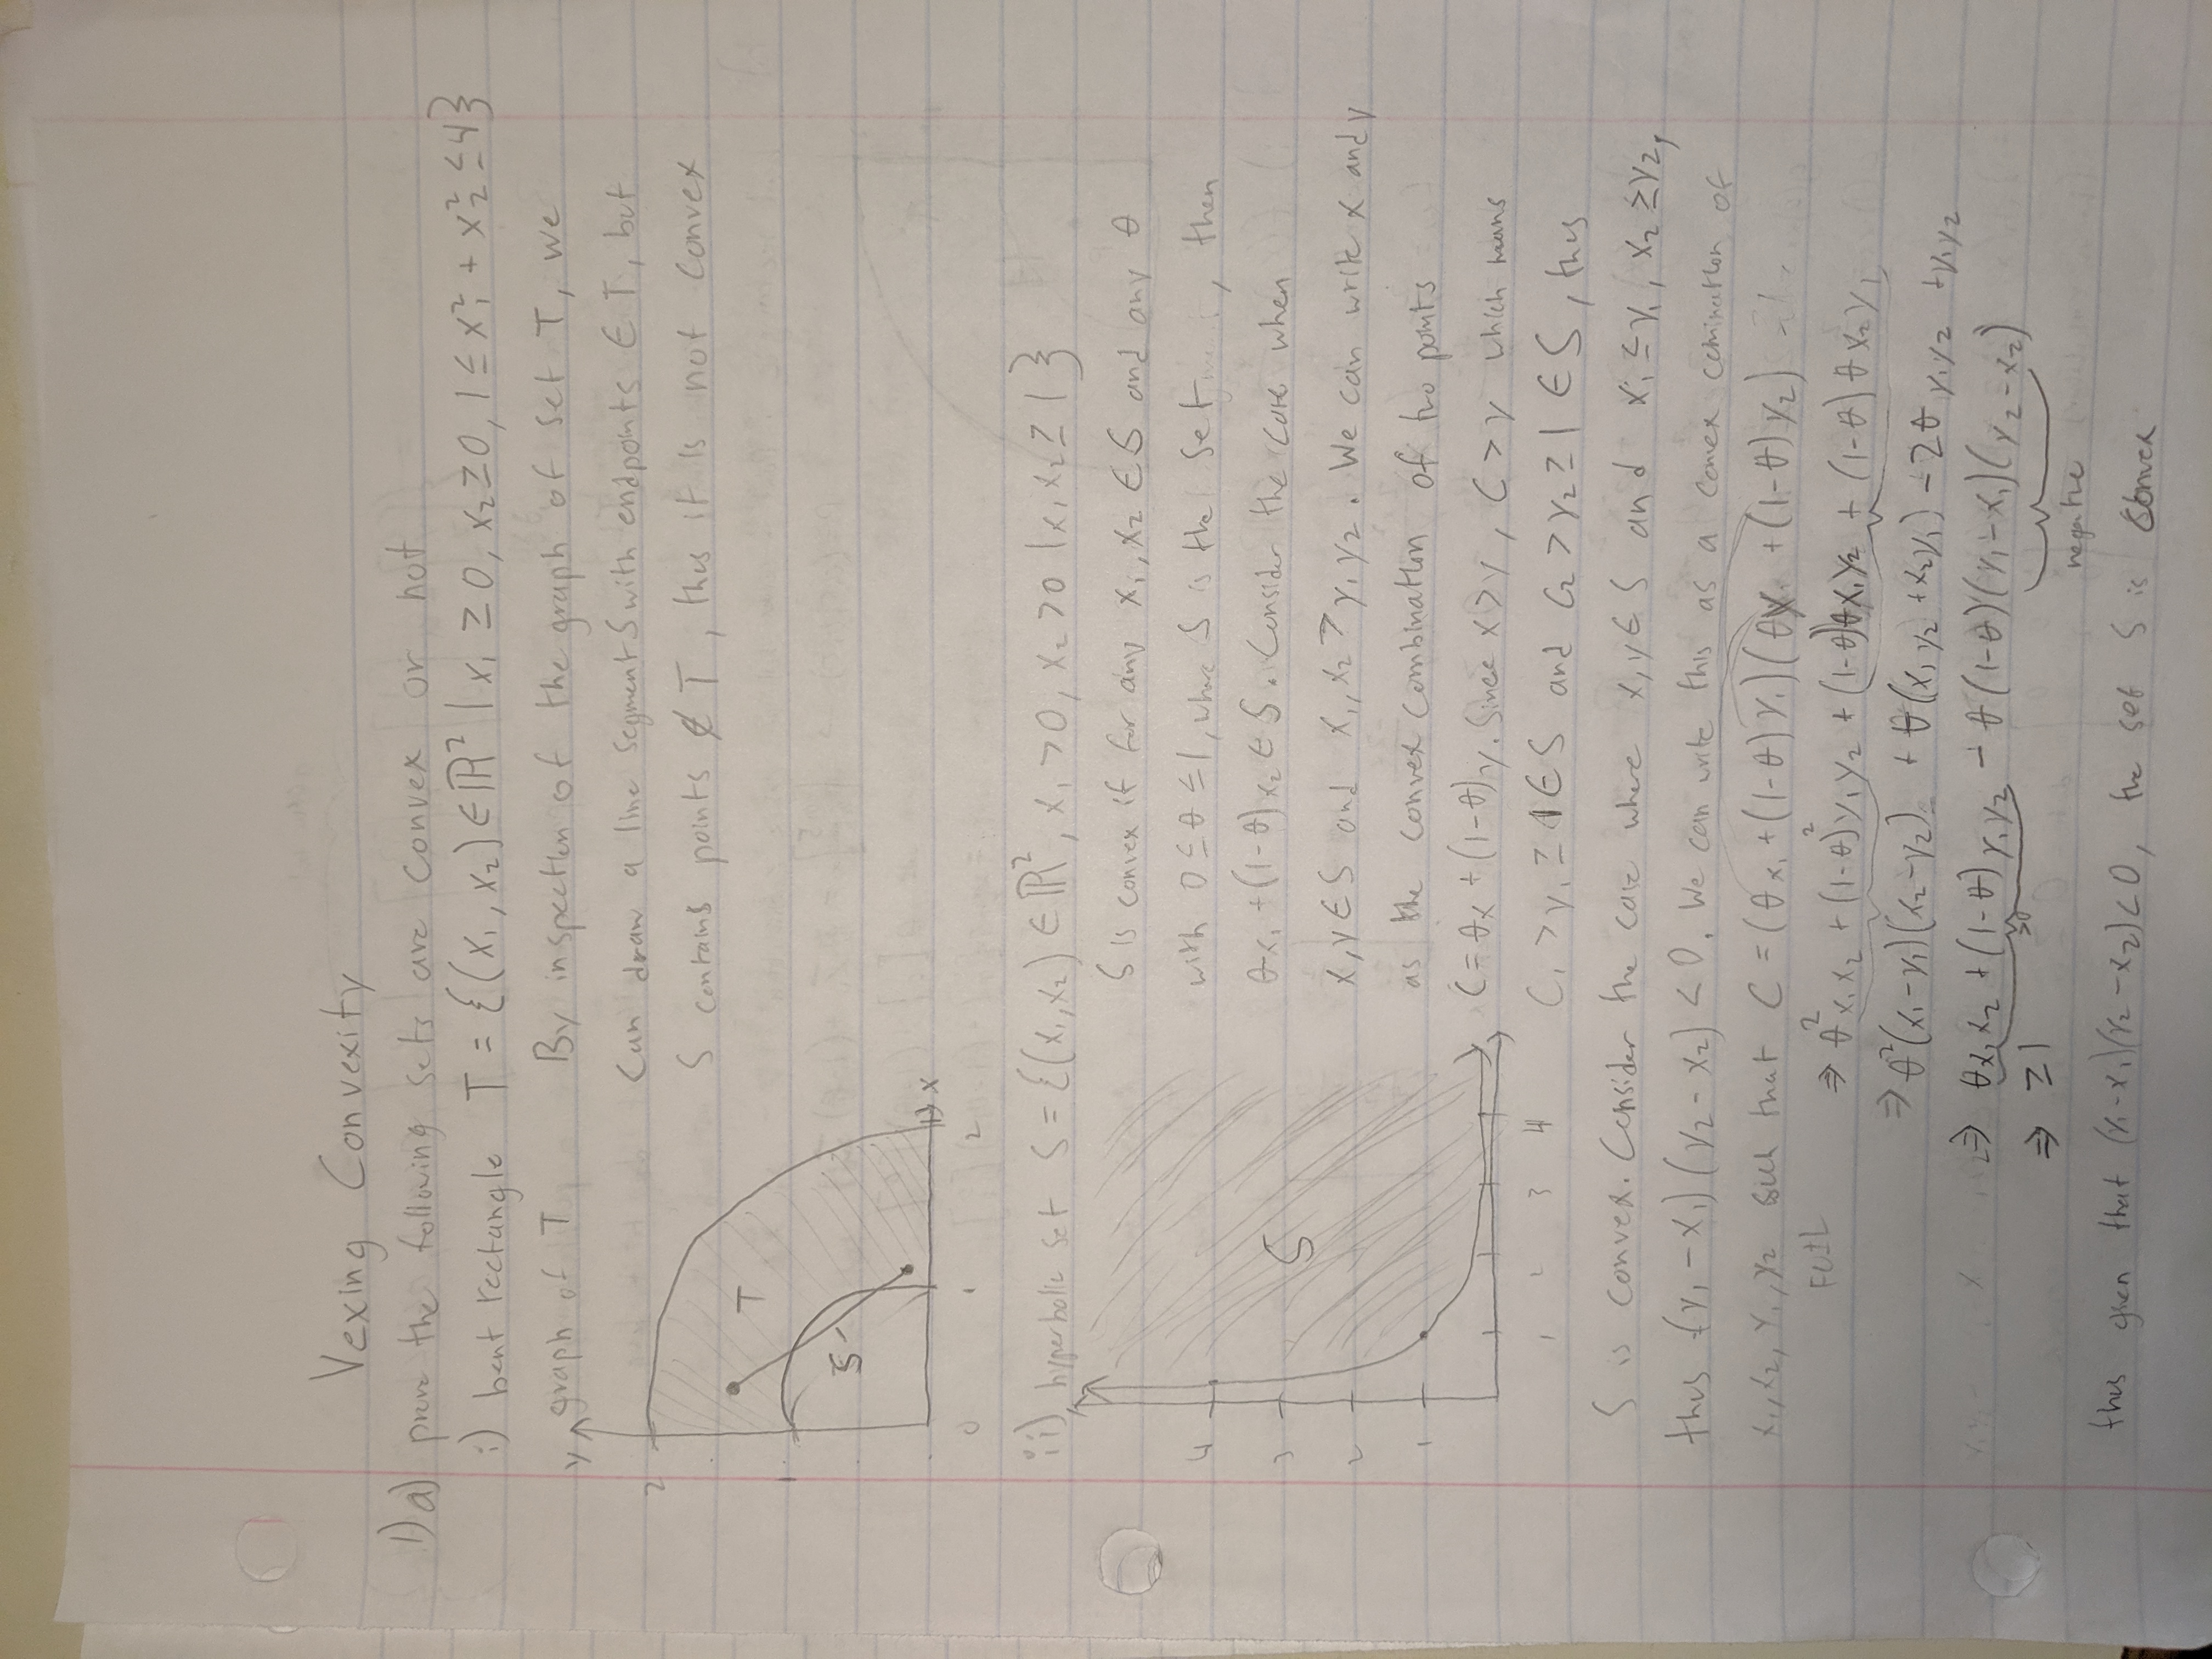 Vexing Convexity
1) a) prove the following sets are convex or not
i) bent rectangle T = {(x₁, x₂) ∈ ℝ² | x₁ ≥ 0, x₂ ≥ 0, 1 ≤ x₁² + x₂² ≤ 4}
y graph of T
By inspection of the graph of set T, we
can draw a line segment S with endpoints ∈ T, but
S contains points ∉ T, thus it is not convex
2
T
1
S
x
0 1 2
ii) hyperbolic set S = {(x₁, x₂) ∈ ℝ², x₁ > 0, x₂ > 0 | x₁x₂ ≥ 1}
S is convex if for any x₁, x₂ ∈ S and any θ
with 0 ≤ θ ≤ 1, where S is the set, then
θx₁ + (1-θ)x₂ ∈ S. Consider the case when
x, y ∈ S and x₁, x₂ > y₁ y₂. We can write x and y
as the convex combination of two points
C = θx + (1-θ)y. Since x > y, C > y which means
C₁ > y₁ ≥ 1 ∈ S and C₂ > y₂ ≥ 1 ∈ S, thus
4
3
S
2
1
1 2 3 4
S is convex. Consider the case where x, y ∈ S and x₁ ≤ y₁, x₂ ≥ y₂,
thus (y₁ - x₁)(y₂ - x₂) < 0. We can write this as a convex comination of
x₁, x₂, y₁, y₂ such that C = (θx₁ + (1-θ)y₁)(θx + (1-θ)y₂)
FOIL ⇒ θ²x₁x₂ + (1-θ)²y₁y₂ + (1-θ)θx₁y₂ + (1-θ)θx₂y₁
⇒ θ²(x₁-y₁)(x₂-y₂) + θ(x₁y₂ + x₂y₁) - 2θy₁y₂ + y₁y₂
⇒ θx₁x₂ + (1-θ)y₁y₂ - θ(1-θ)(y₁-x₁)(y₂-x₂)
≥0
⇒ ≥ 1
negative
thus given that (y₁-x₁)(y₂-x₂) < 0, the set S is convex